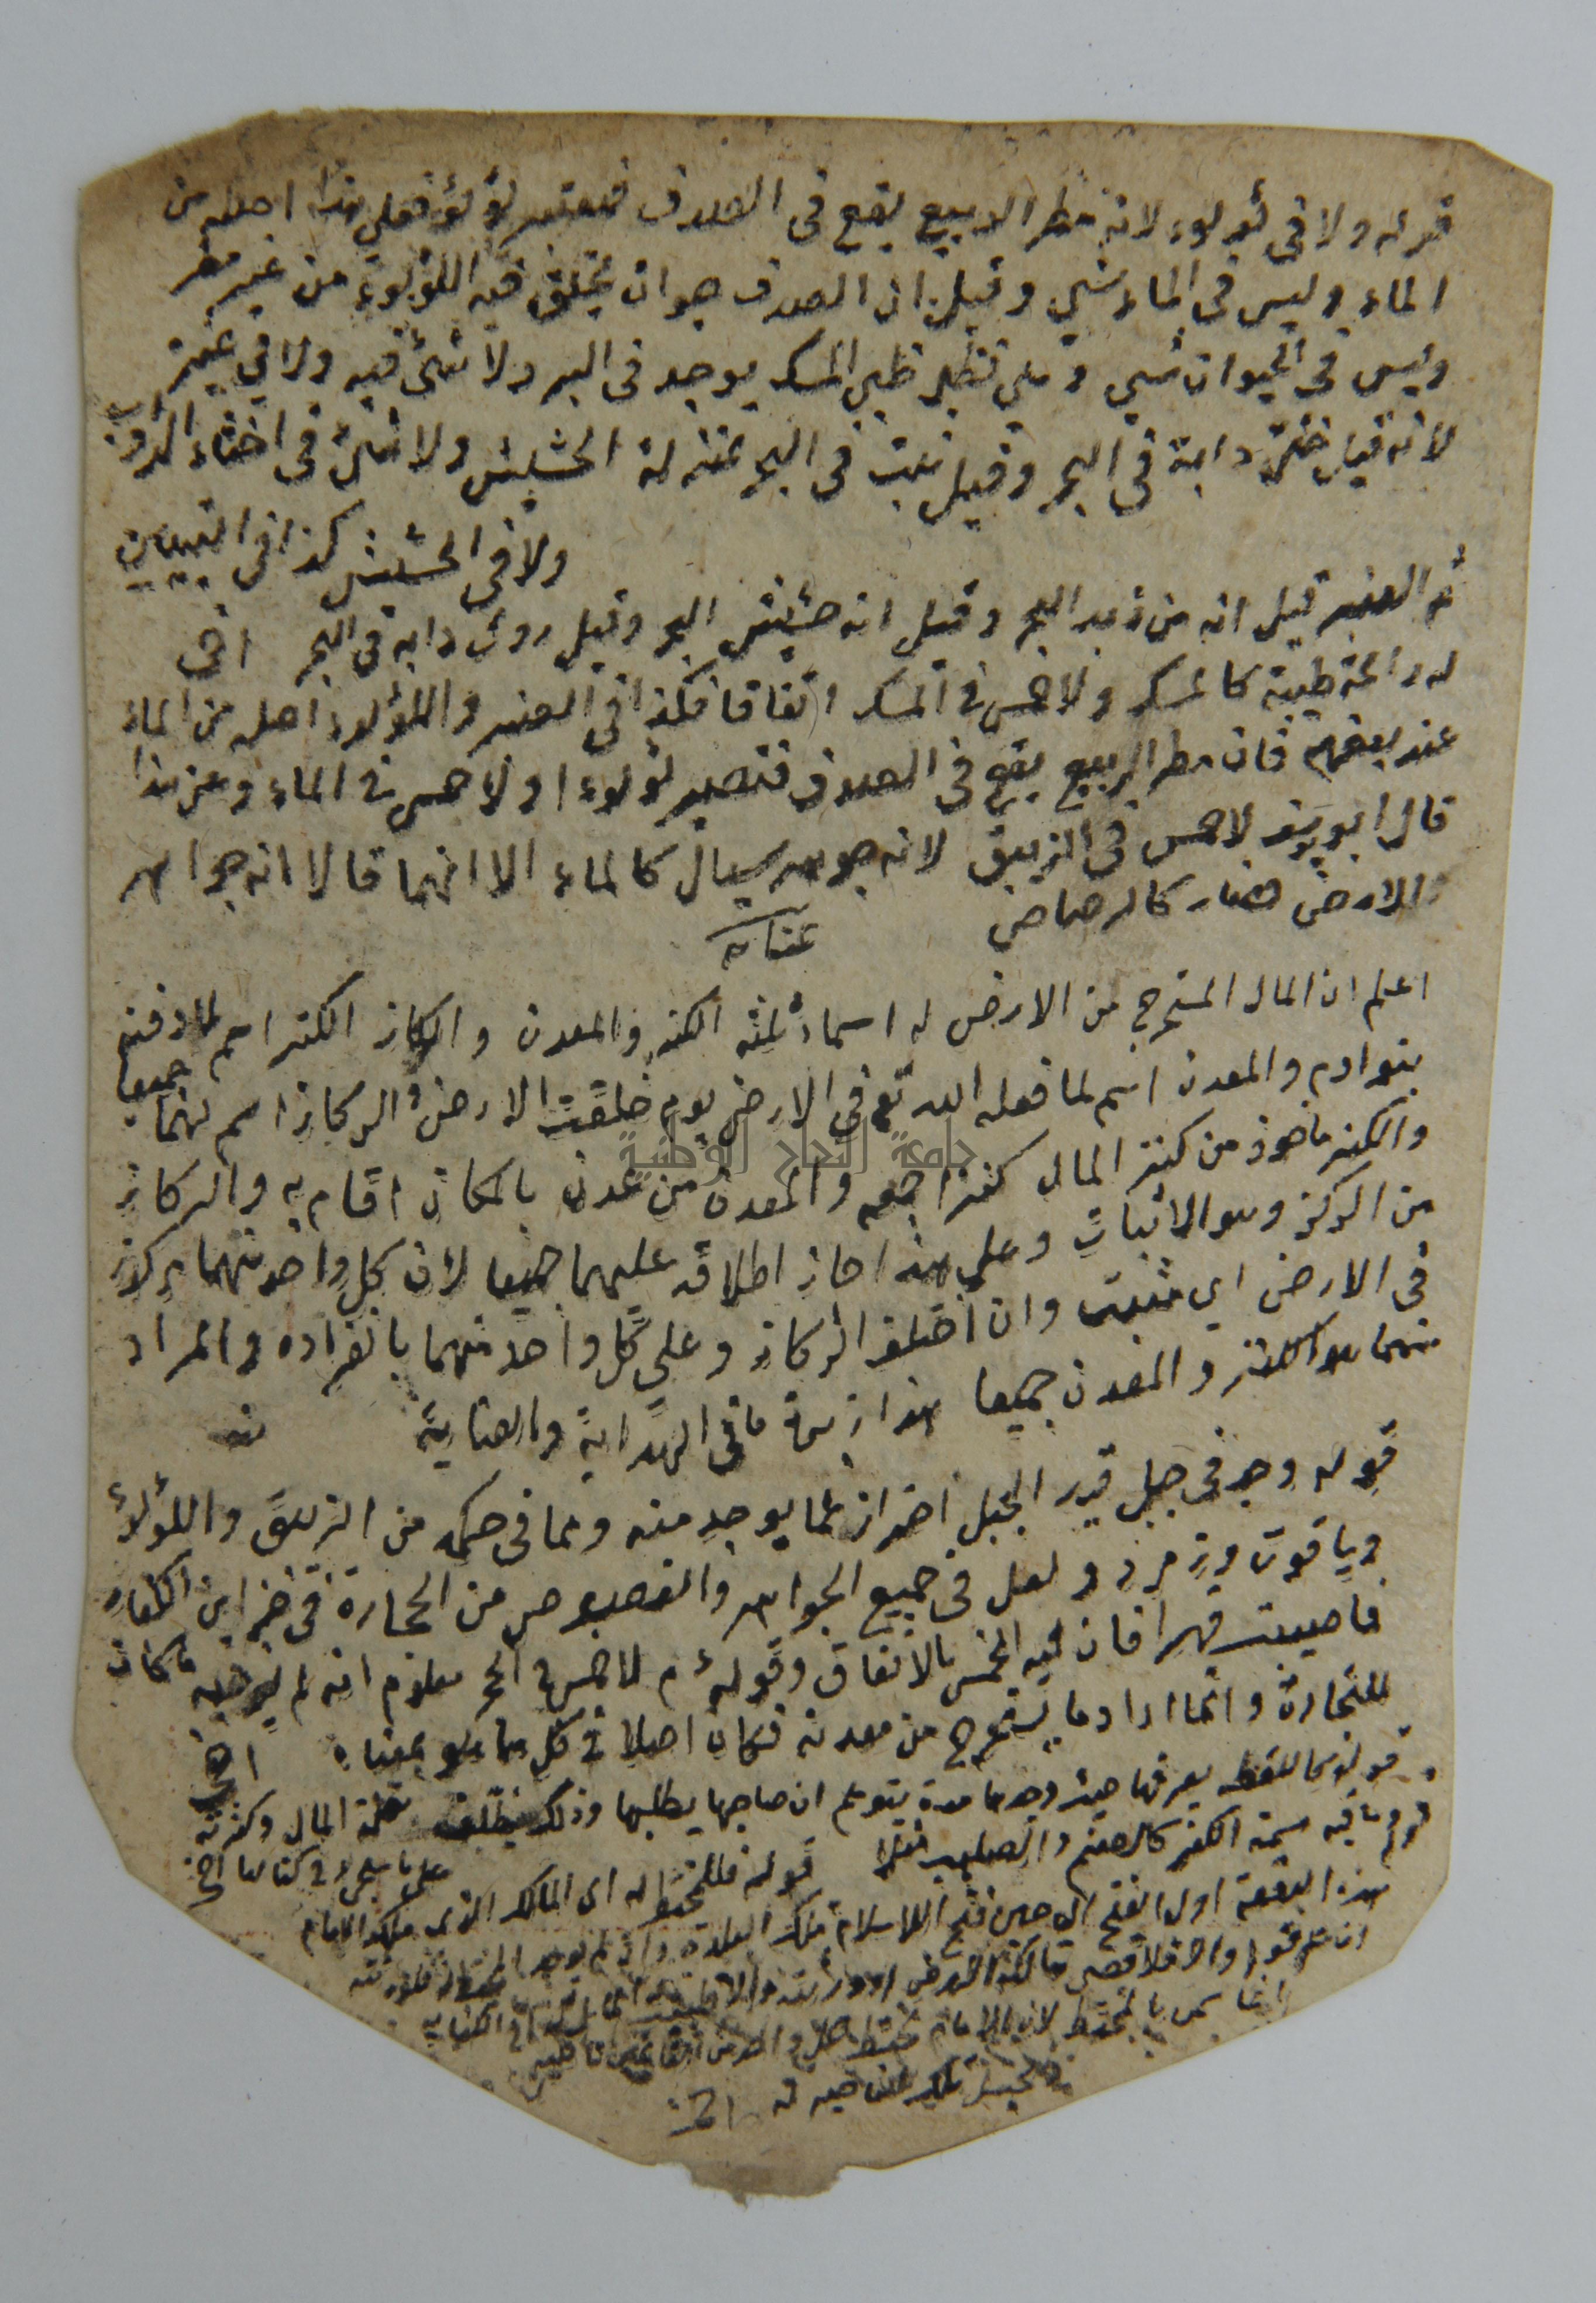 قوله ولا في لؤلوء لانه مطر الربيع يقع في الصدف فيصير لؤلؤ فعلي هذا اصله من
الماء وليس في الماء شيء وقيل ان الصدف حيوان يخلق فيه اللؤلوء من غير مطر
وليس في الحيوان شيء وهي نظير ظبي المسك يوجد في البر ولا شئ فيه ولا في عنبر
لانه قيل خثي دابة في البحر وقيل نبت في البحر بمنزلة الحشيش ولا شئ في اخثاء الدواب
ولا في الحشيش كذا في التبيين
ثم العنبر قيل انه من زبد البحر وقيل انه حشيش البحر وقيل روث دابه في البحر اخي
له رائحة طيبة كالمسك ولا خمس في المسك اتفاقا فكذا في العنبر واللؤلوء اصله من الماء
عند بعضهم فان مطر الربيع يقع في الصدف فتصير لؤلوء ا ولا خمس في الماء وعن هذا
قال ابو يوسف لا خمس في الزيبق لانه جوهر سيال كالماء الا انهما قالا انه جواهر
الارض فصار كالرصاص عنايه
اعلم ان المال المستخرج من الارض له اسماء ثلثه الكنز والمعدن والركاز الكنز اسم لما دفنه
بنو ادم والمعدن اسم لما خلقه الله تع في الارض يوم خلقت الارض والركاز اسم لهما جميعا
والكنز ماخوذ من كنز المال كنزا جمعه والمعدن من عدن بالمكان اقام به والركاز
من الركز وهو الاثبات وعلي هذا جاز اطلاقه عليهما جميعا لان كل واحد منهما مركوز
في الارض اي مثبت وان اختلف الركاز وعلي كل واحد منهما بانفراده والمراد
منهما هو الكنز والمعدن جميعا هذا زبدة ما في الهداية والعناية
قوله وجد في جبل قيد الجبل احتراز عما يوجد منه ومما في حكمه من الزيبق واللؤلؤ
وياقوت وزمرد ولعل في جميع الجواهر والفصوص من الحجارة في خزاين الكفار
فاصيبت قهرا فان فيه الخمس بالاتفاق وقوله لا خمس في الحجر معلوم انه لم يرد به ما كان
للتجارة وانما اراد ما يستخرج من معدنه فكان اصلا في كل ما هو بمعناه اخي
قوله كاللقطه يعرفها حيث وجدها مدة يتوهم ان صاحبها يطلبها وذلك يختلف بقلة المال وكثرته
وما فيه سمة الكفر كالصنم والصليب قوله فللمختط له اي المالك الذي ملكه الامام
هذه البقعة اول الفتح اي حين فتح اهل الاسلام تلك البلدة وان لم يوجد المختط فلورثته